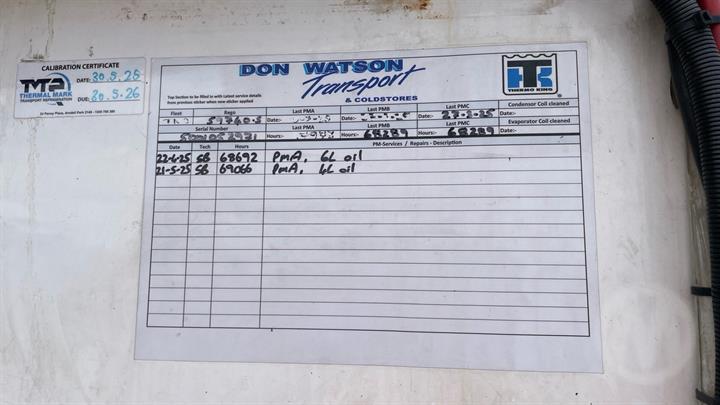 CALIBRATION CERTIFICATE
DATE: 30.5.25
THERMAL MARK
TRANSPORT REFRIGERATION
DUE: 30.5.26
DON WATSON
Transport
& COLDSTORES
THERMO KING
Top Section to be filled in with Latest service details
from previous sticker when new sticker applied
Fleet Rego Last PMA Last PMB Last PMC Condensor Coil cleaned
59760-S Date:- Date:- Date:- 27-2-25 Date:-
Serial Number Last PMA Last PMB Last PMC Evaporator Coil cleaned
Hours:- Hours:- 68289 Hours:- 68289 Date:-
Date Tech Hours PM-Services / Repairs - Description
22-4-25 SB 68692 PMA, 6L oil
21-5-25 SB 69066 PMA, 6L oil